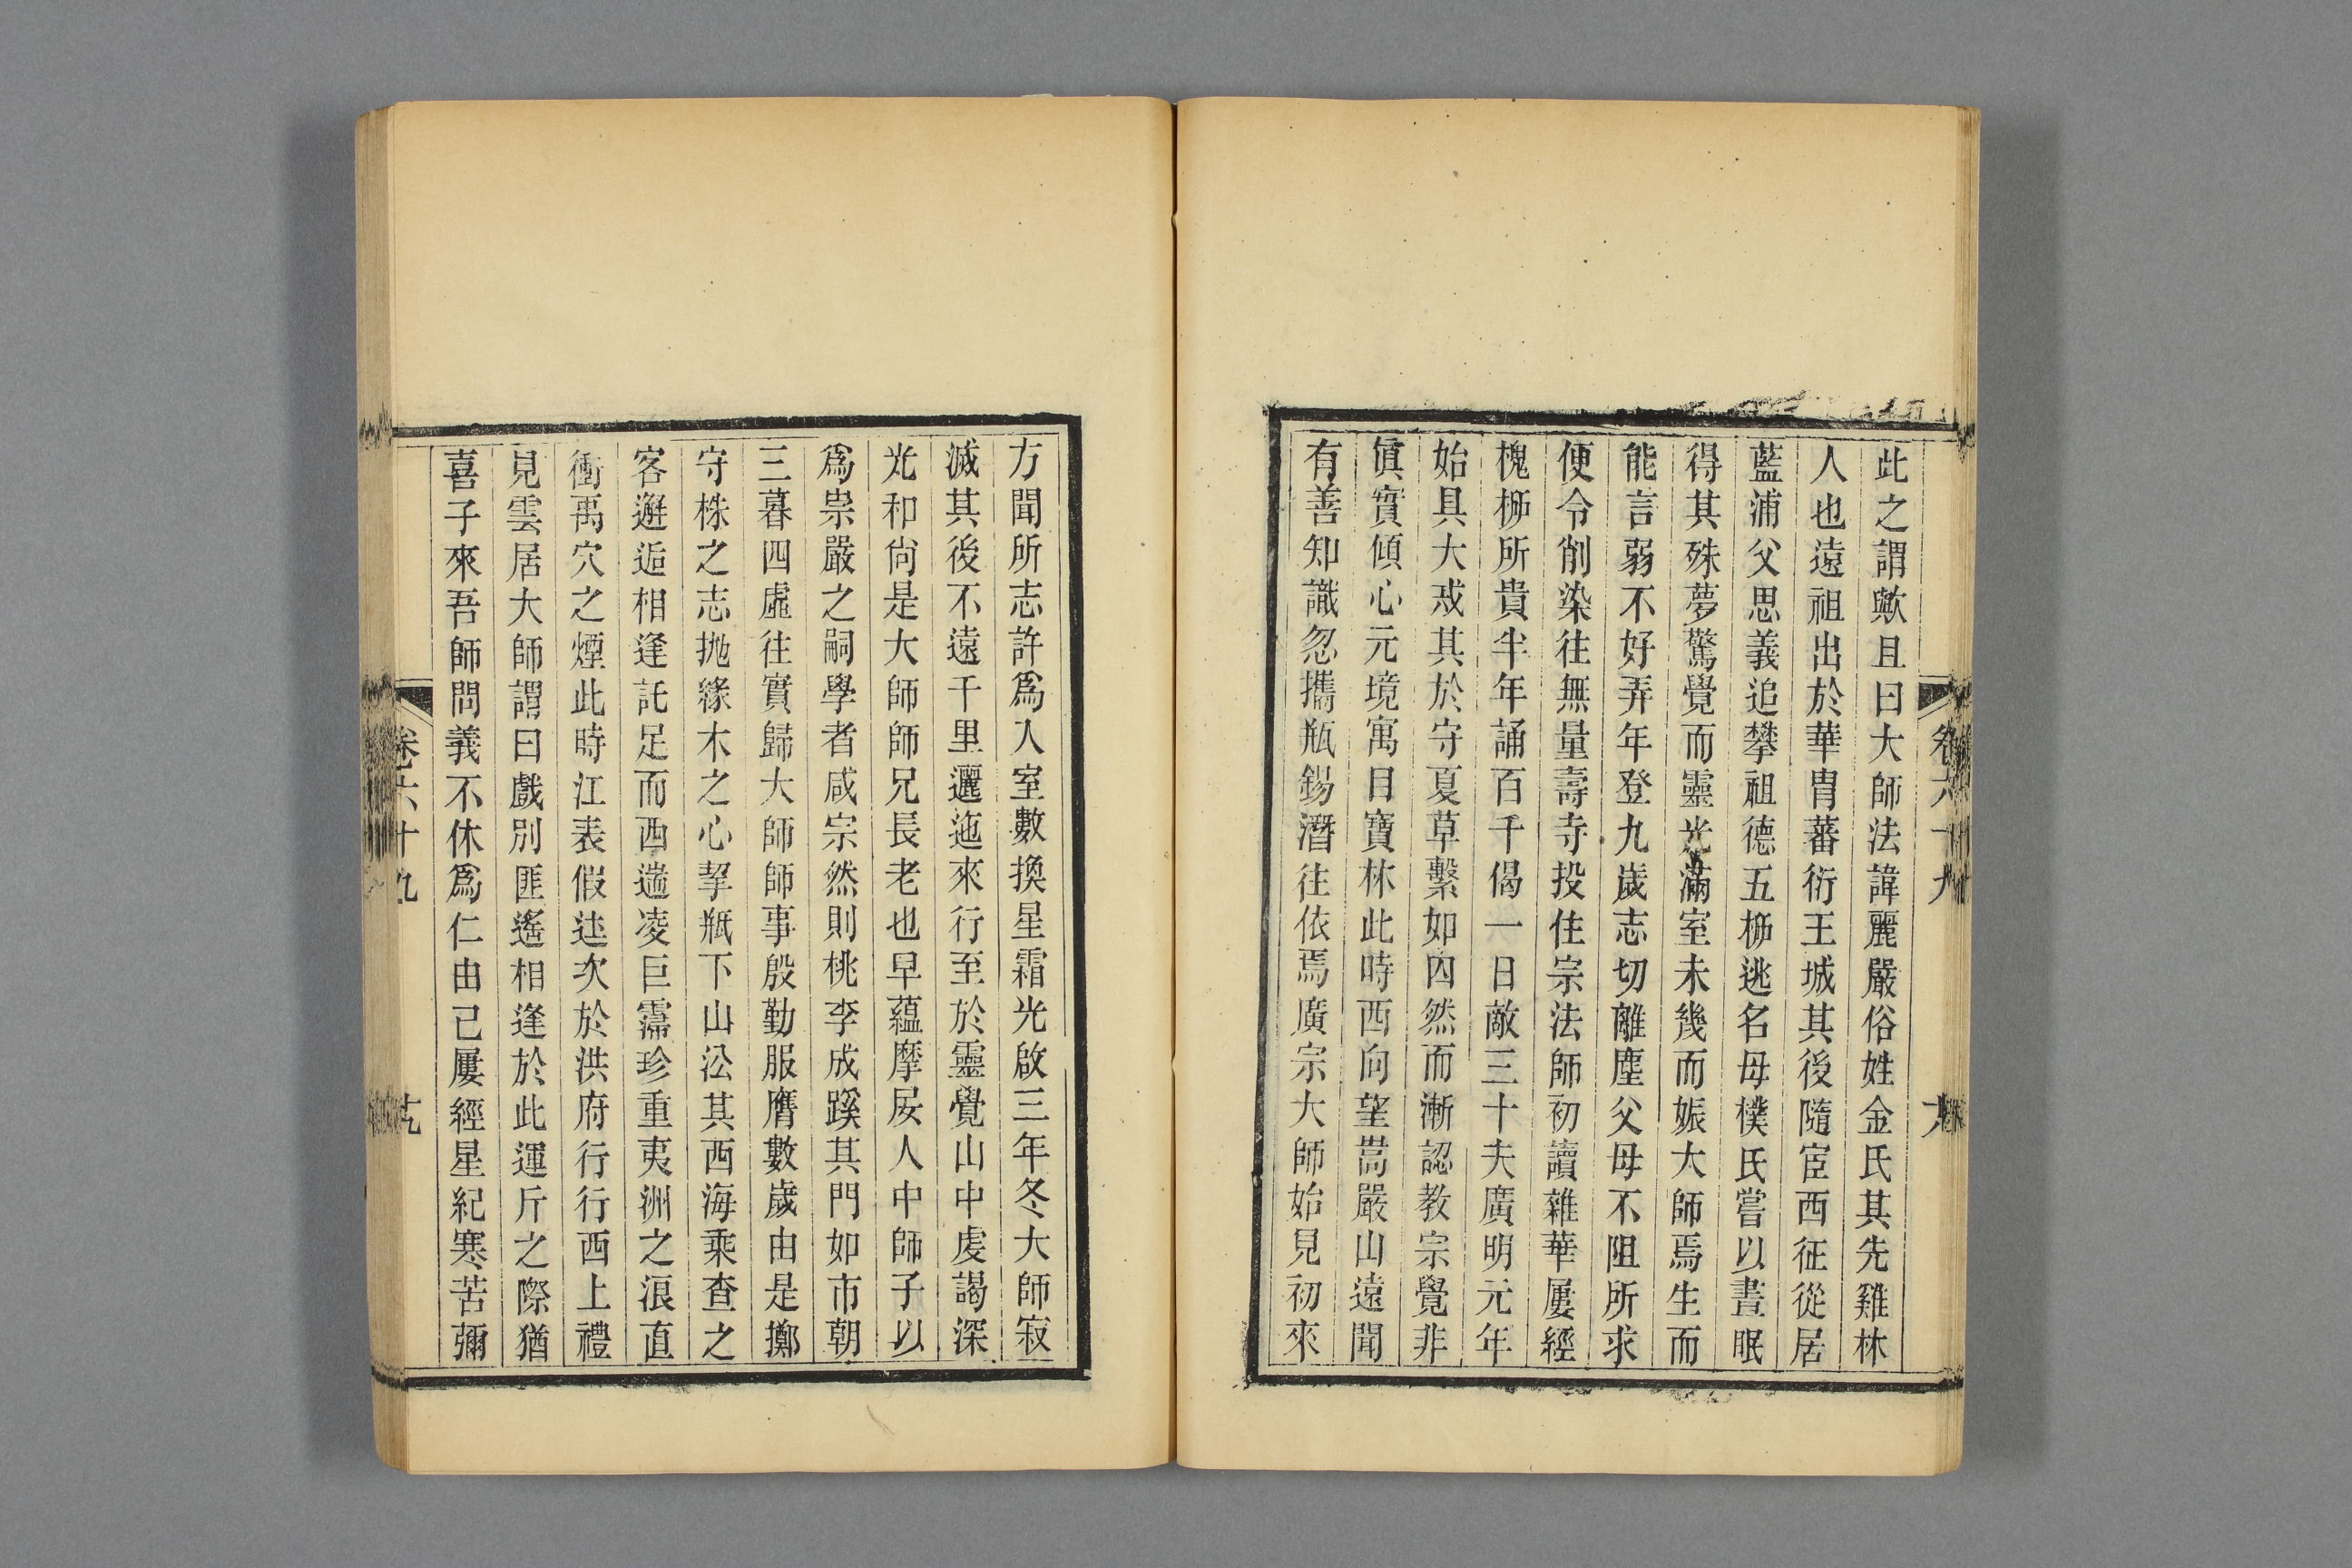 此之謂歟且曰大師法諱麗嚴俗姓金氏其先雞林
人也遠祖出於華胄蕃衍王城其後隨宦西征從居
藍浦父思義追攀祖德五栁逃名母樸氏嘗以晝眠
得其殊夢驚覺而靈光滿室未幾而娠大師焉生而
能言弱不好弄年登九歲志切離塵父母不阻所求
便令削染往無量壽寺投住宗法師初讀雜華屢經
槐栁所貴半年誦百千偈一日敵三十夫廣明元年
始具大戒其於守夏草繫如囚然而漸認教宗覺非
眞實傾心元境寓目寶林此時西向望嵩嚴山遠聞
有善知識忽攜瓶錫潛往依焉廣宗大師始見初來
方聞所志許爲入室數換星霜光啟三年冬大師寂
滅其後不遠千里邐迤來行至於靈覺山中虔謁深
光和尙是大師師兄長老也早蘊摩𡱝人中師子以
爲崇嚴之嗣學者咸宗然則桃李成蹊其門如市朝
三暮四虛往實歸大師師事殷勤服膺數歲由是擲
守株之志抛緣木之心挈瓶下山㳂其西海乘查之
客邂逅相逢託足而西遄凌巨𩆍珍重夷洲之浪直
衝禹穴之煙此時江表假𨒪次於洪府行行西上禮
見雲居大師謂曰戲別匪遙相逢於此運斤之際猶
喜子來吾師問義不休爲仁由己屢經星紀寒苦彌
卷六十九